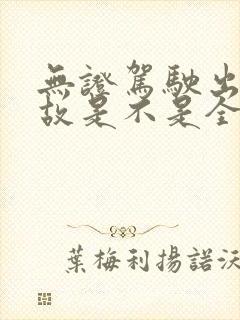 無證駕駛出
故是不是全
葉梅利揚諾沃